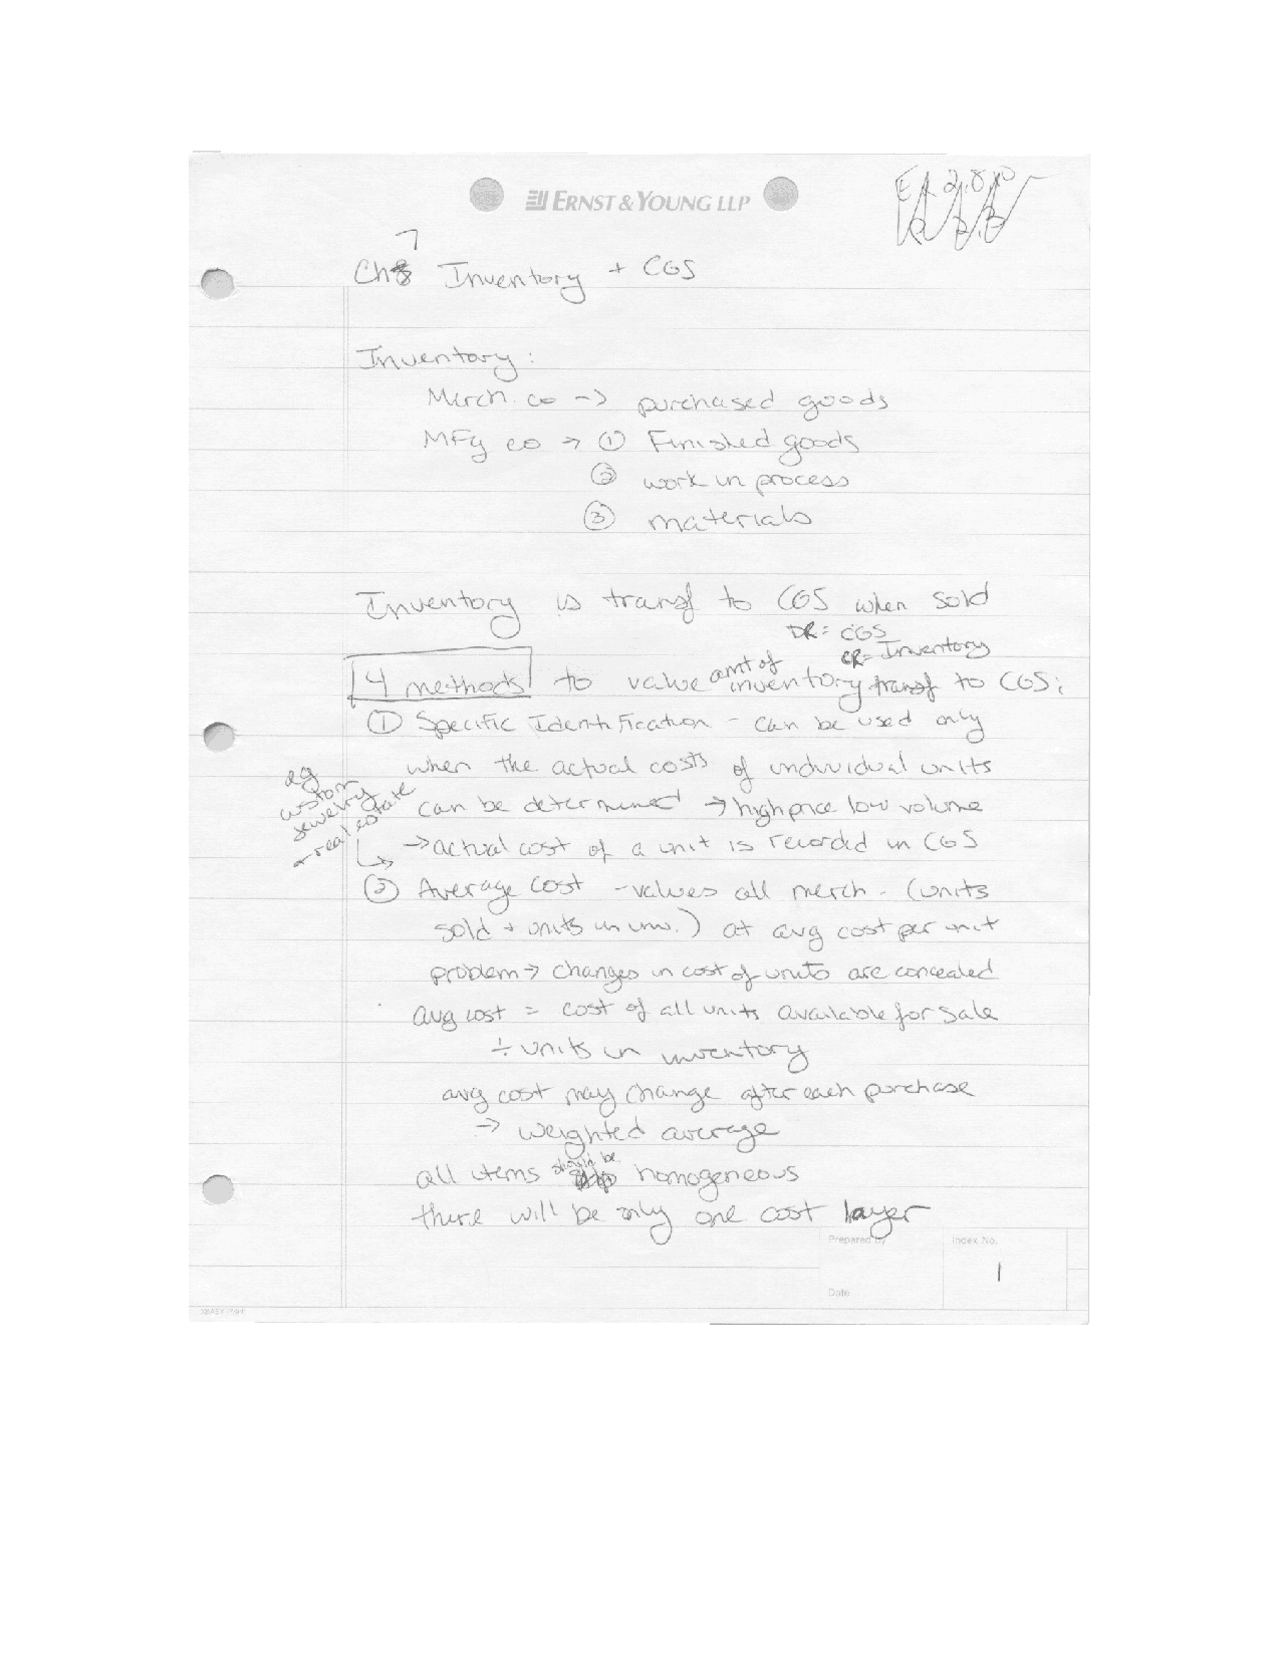 ERNST & YOUNG LLP
Ch 7 Inventory + CGS
Inventory:
Merch. co -> purchased goods
MFg co -> ① Finished goods
② work in process
③ materials
Inventory is transf to CGS when sold
DR = CGS
CR = Inventory
4 methods to value amt of inventory transf to CGS:
① Specific Identification - can be used only
when the actual costs of individual units
can be determined → high price low volume
→ actual cost of a unit is recorded in CGS
eg
custom
jewelry
+ real estate
② Average cost - values all merch. (units
sold + units in inv.) at avg cost per unit
problem → changes in cost of units are concealed
avg cost = cost of all units available for sale
÷ units in inventory
avg cost may change after each purchase
→ weighted average
all items should be homogeneous
there will be only one cost layer
Prepared by
Index No.
1
Date